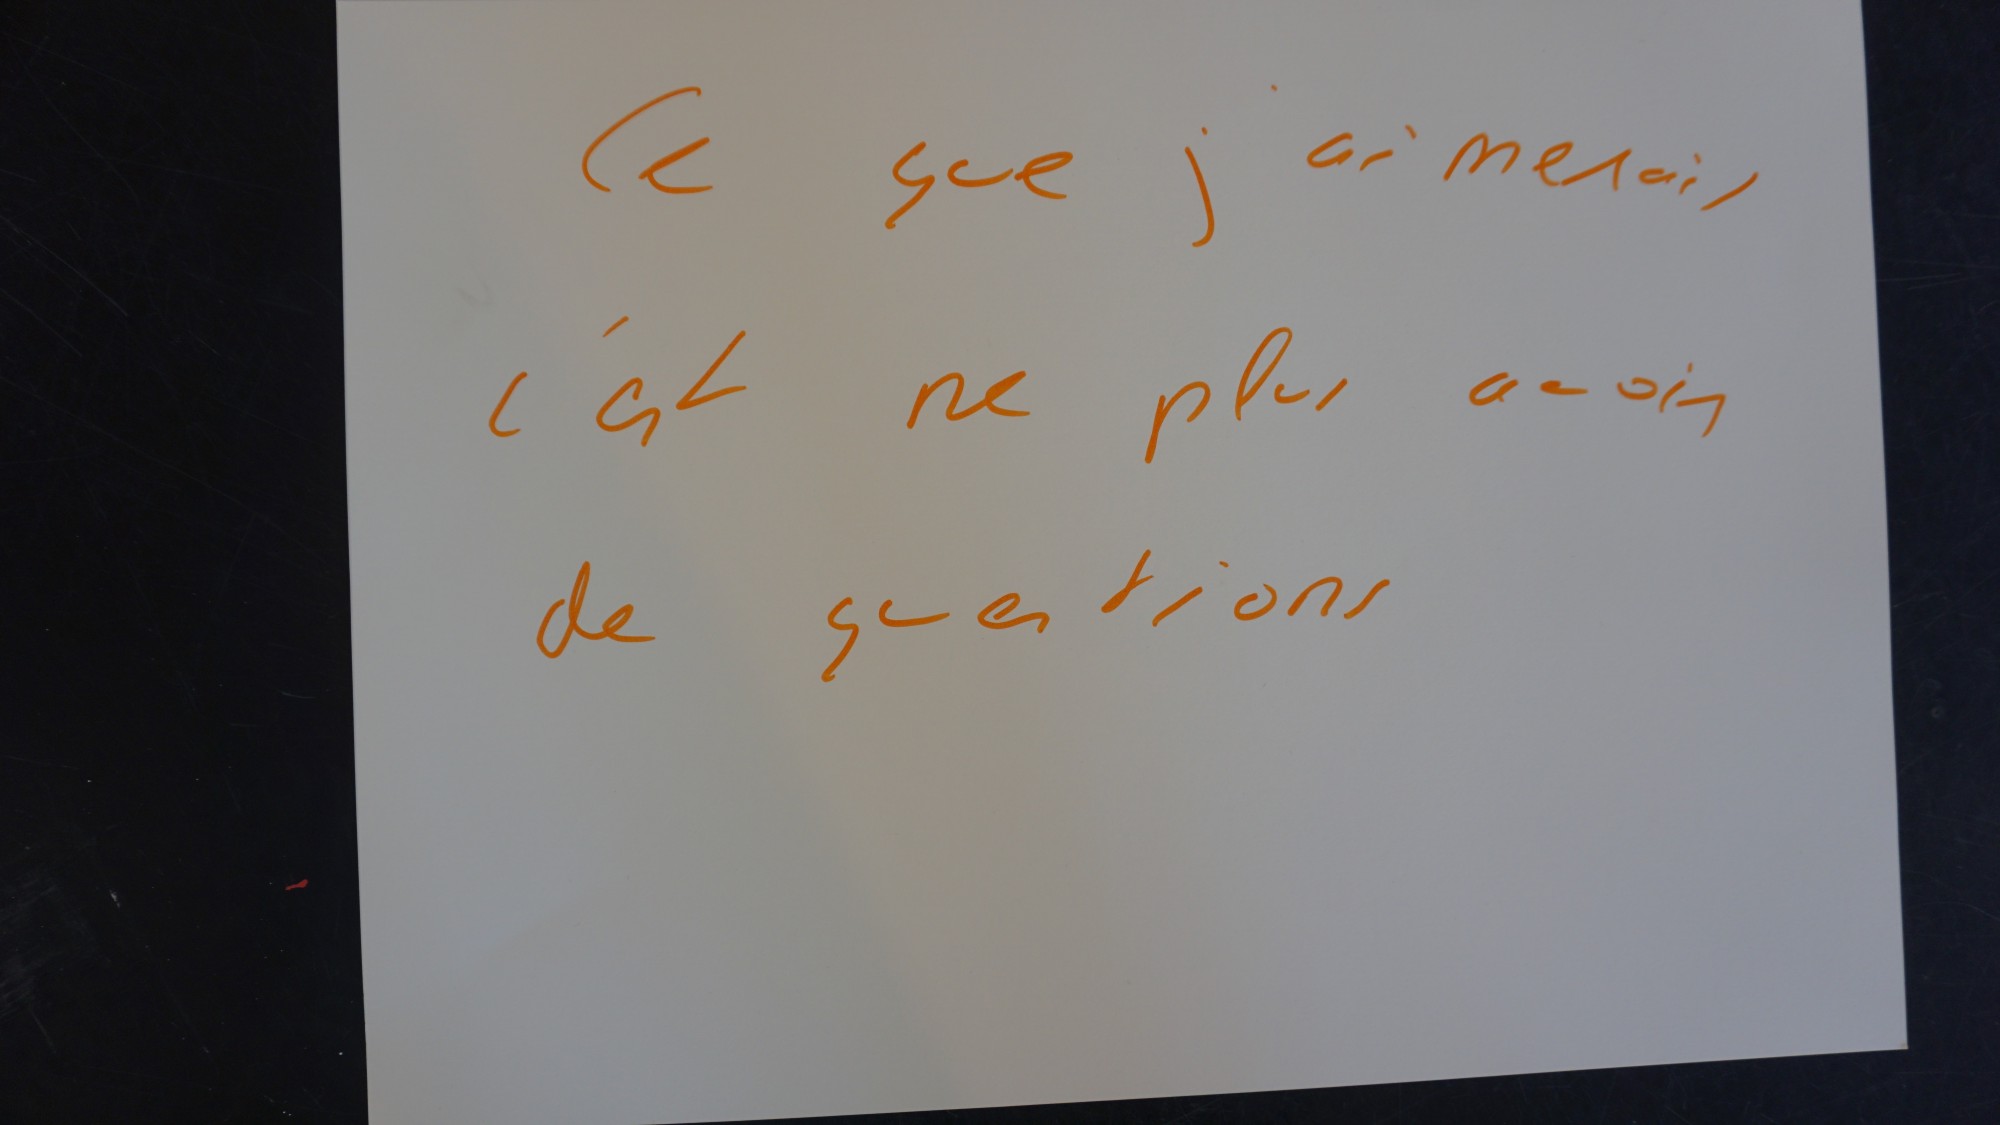 Ce que j'aimerais
c'est ne plus avoir
de questions